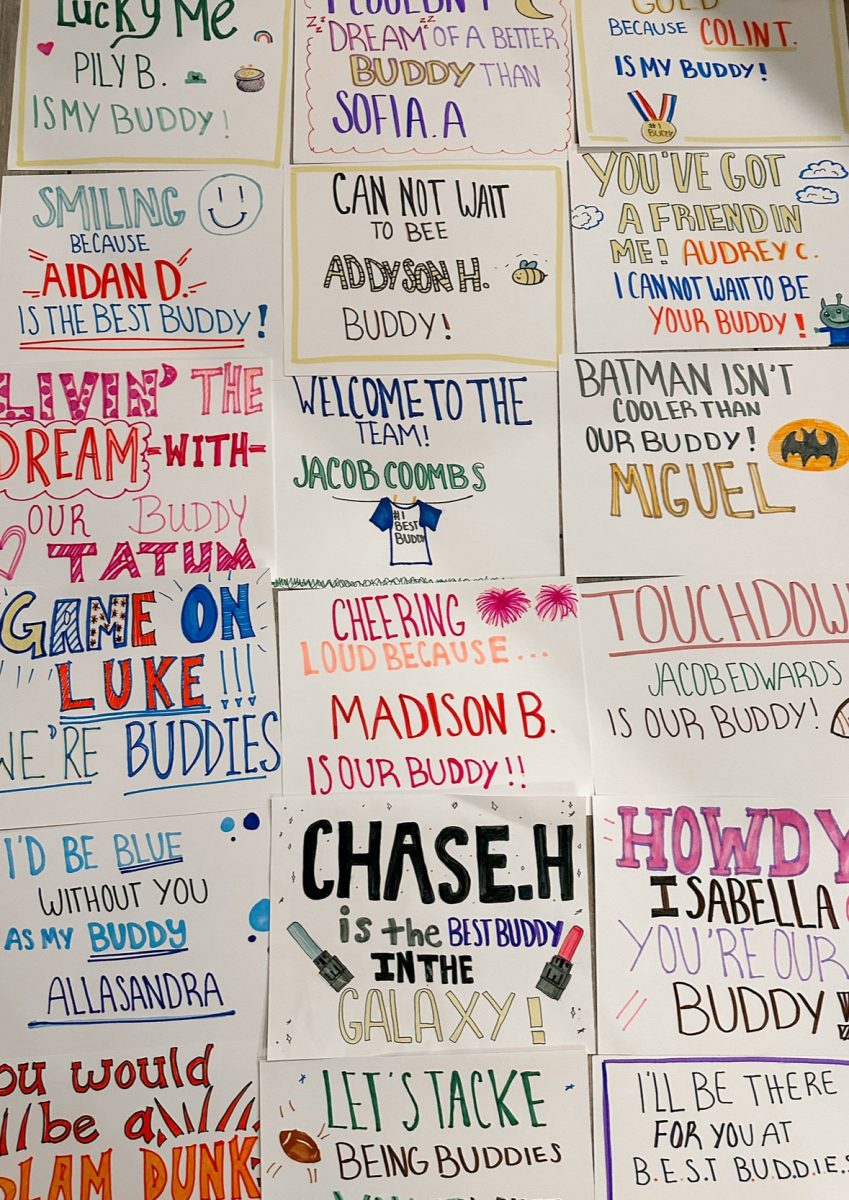 Lucky Me
PILY B.
IS MY BUDDY!
I COULDN'T
DREAM OF A BETTER
zzz
zz
BUDDY THAN
SOFIA.A
GOLD
BECAUSE COLIN T.
IS MY BUDDY!
#1
BUDDY
SMILING
BECAUSE
AIDAN D.
IS THE BEST BUDDY!
CAN NOT WAIT
TO BEE
ADDYSON H.
BUDDY!
YOU'VE GOT
A FRIEND IN
ME! AUDREY C.
I CAN NOT WAIT TO BE
YOUR BUDDY!
LIVIN' THE
DREAM-WITH-
OUR BUDDY
TATUM
WELCOME TO THE
TEAM!
JACOB COOMBS
#1
BEST
BUDDY
BATMAN ISN'T
COOLER THAN
OUR BUDDY!
MIGUEL
GAME ON
LUKE!!!
WE'RE BUDDIES
CHEERING
LOUD BECAUSE...
MADISON B.
IS OUR BUDDY!!
TOUCHDOWN
JACOB EDWARDS
IS OUR BUDDY!
I'D BE BLUE
WITHOUT YOU
AS MY BUDDY
ALLASANDRA
CHASE.H
is the BEST BUDDY
IN THE
GALAXY!
HOWDY
ISABELLA
YOU'RE OUR
BUDDY!
you would
be a
SLAM DUNK
LET'S TACKE
BEING BUDDIES
I'LL BE THERE
FOR YOU AT
B.E.S.T B.U.D.D.I.E.S